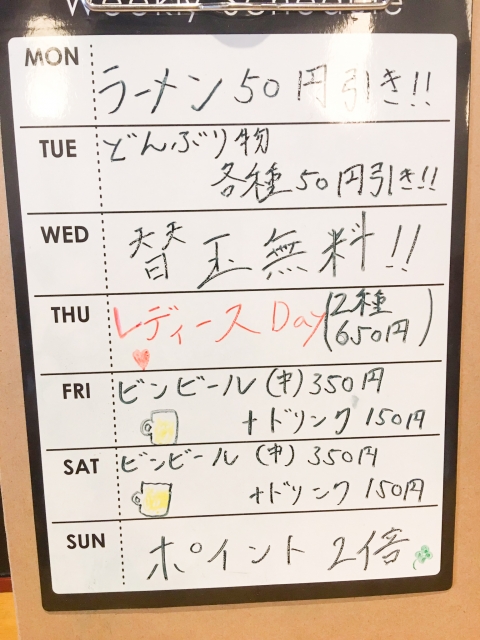 Weekly Schedule
MON
ラーメン 50円引き!!
TUE
どんぶり物
各種50円引き!!
WED
替玉無料!!
THU
レディース Day (2種
650円)
FRI
ビンビール (中) 350円
+ドリンク 150円
SAT
ビンビール (中) 350円
+ドリンク 150円
SUN
ポイント 2倍